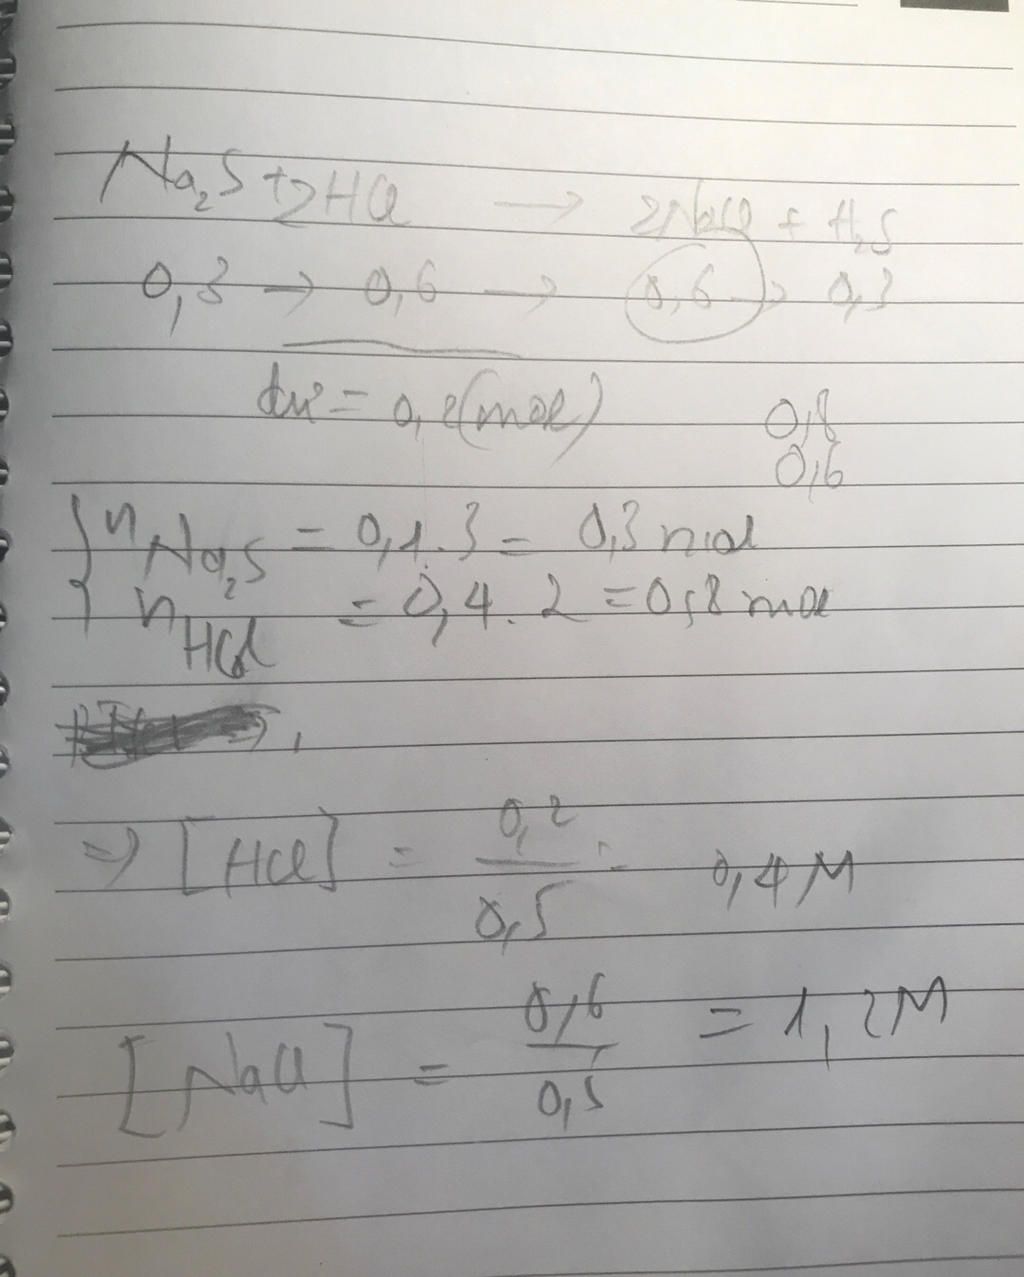 Na₂S + 2HCl → 2NaCl + H₂S
0,3 → 0,6 → 0,6 → 0,3
dư = 0,2(mol)
0,8
0,6
n Na₂S = 0,1.3 = 0,3 mol
n HCl = 0,4.2 = 0,8 mol
⇒ [HCl] = 0,2 / 0,5 = 0,4M
[NaCl] = 0,6 / 0,5 = 1,2M